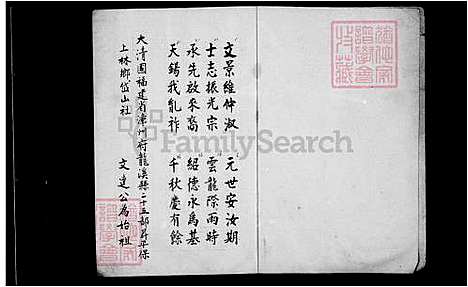 文景維仲淑 元世安汝期
士志振光宗 雲龍際雨時
承先啟來裔 紹德永為基
天錫我胤祚 千秋慶有餘
大清國福建省漳州府龍溪縣二十五都昇平保
上林鄉岱山社 文達公為始祖
FamilySearch